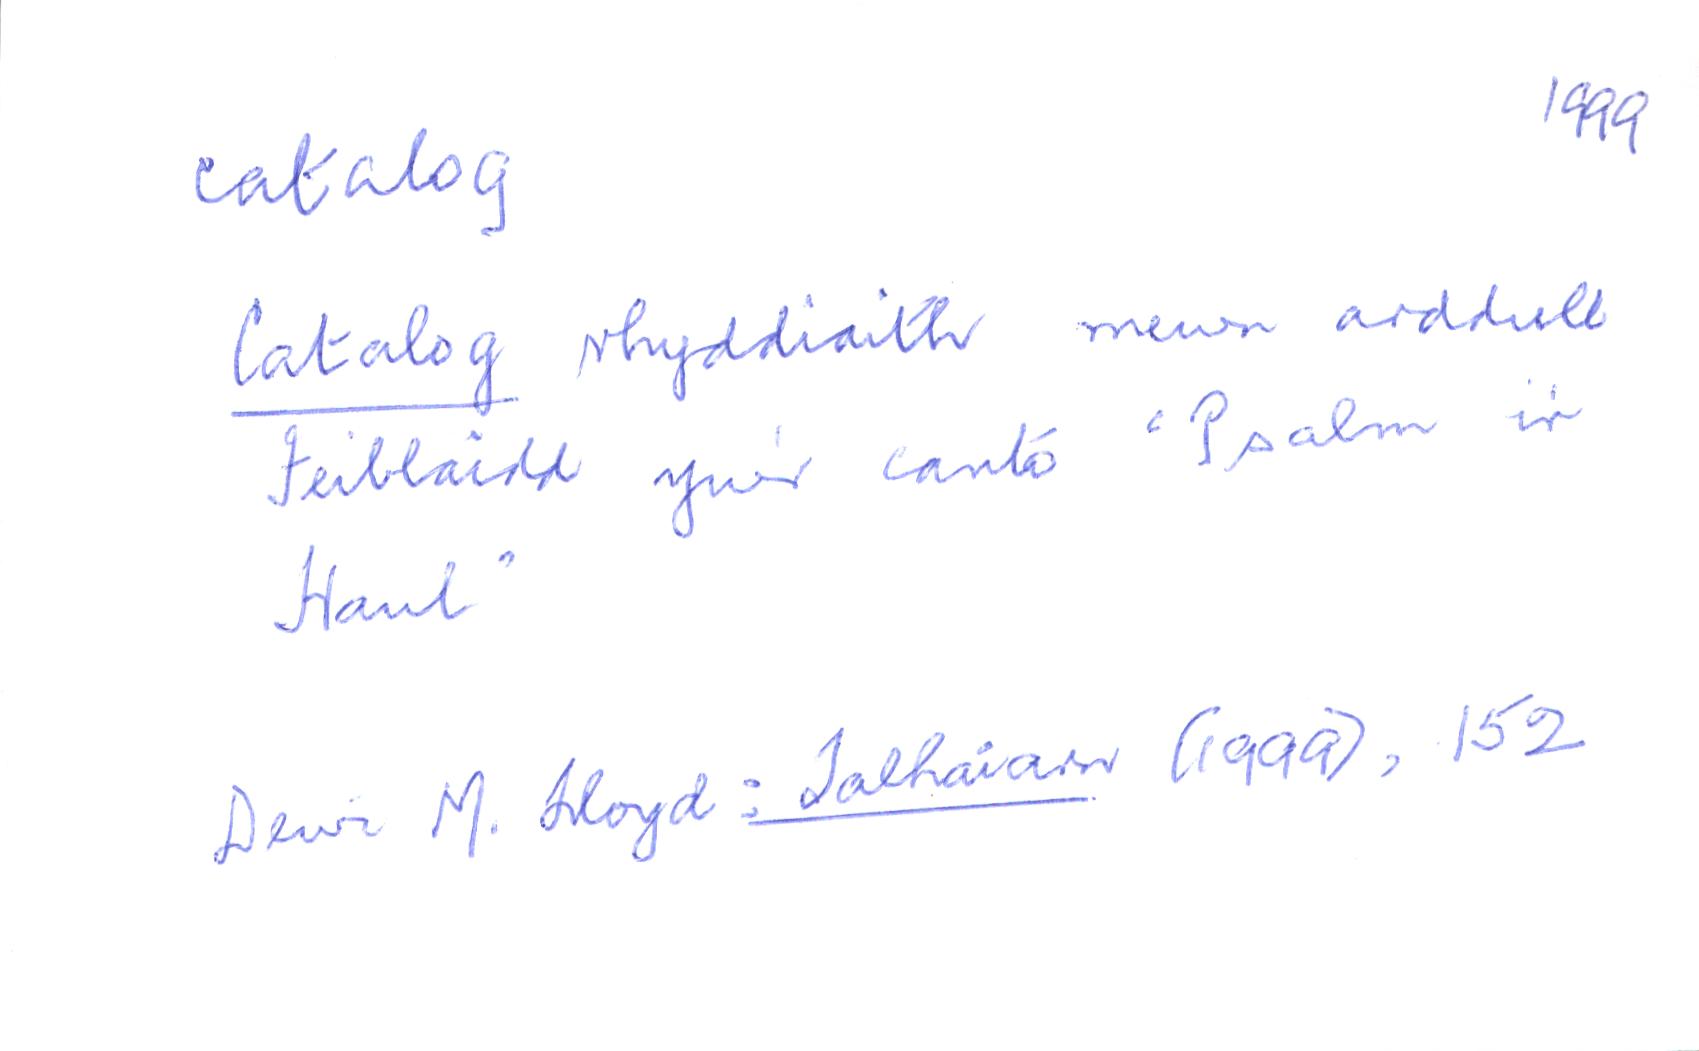 1999
catalog
Catalog rhyddiaith mewn arddull
Feiblaidd yw'r canto "Psalm i'r
Haul"
Dewi M. Lloyd: Talhaiarn (1999), 152